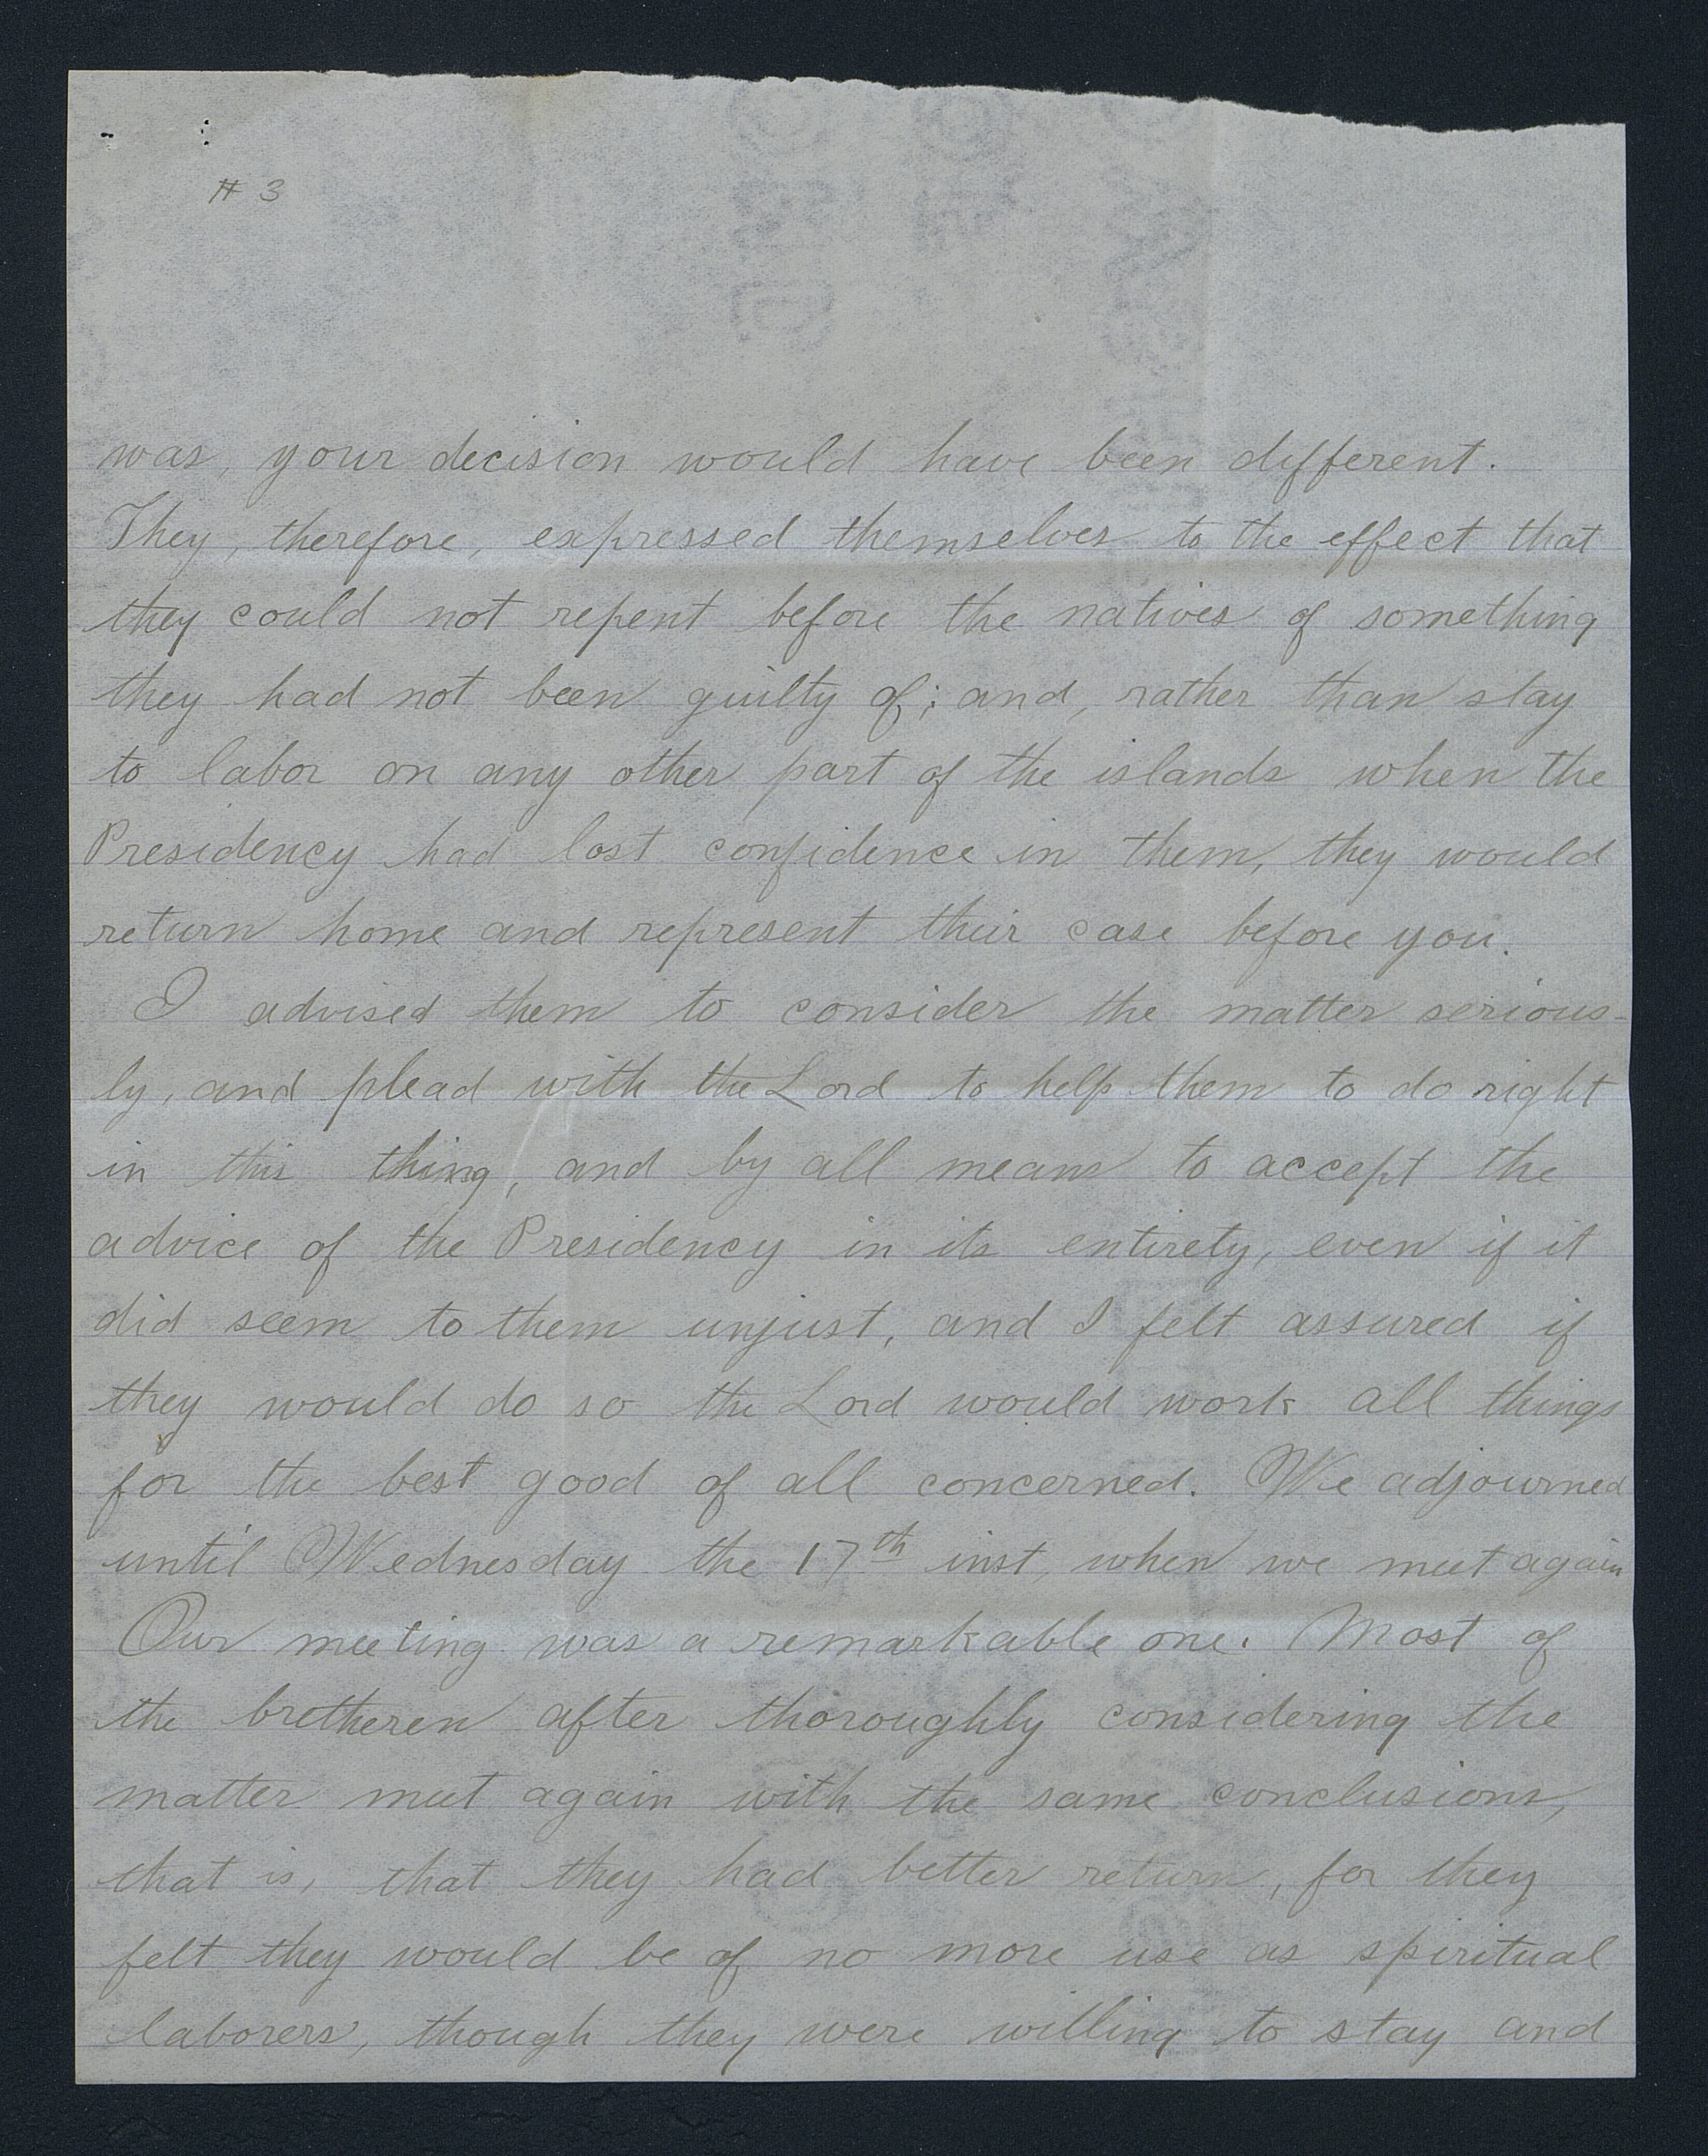 # 3
was, your decision would have been different.
They, therefore, expressed themselves to the effect that
they could not repent before the natives of something
they had not been guilty of; and, rather than stay
to labor on any other part of the islands when the
Presidency had lost confidence in them, they would
return home and represent their case before you.
I advised them to consider the matter serious-
ly, and plead with the Lord to help them to do right
in this thing, and by all means to accept the
advice of the Presidency in its entirety, even if it
did seem to them unjust, and I felt assured if
they would do so the Lord would work all things
for the best good of all concerned. We adjourned
until Wednesday the 17th inst, when we meet again
Our meeting was a remarkable one. Most of
the bretheren after thoroughly considering the
matter meet again with the same conclusions,
that is, that they had better return, for they
felt they would be of no more use as spiritual
laborers, though they were willing to stay and